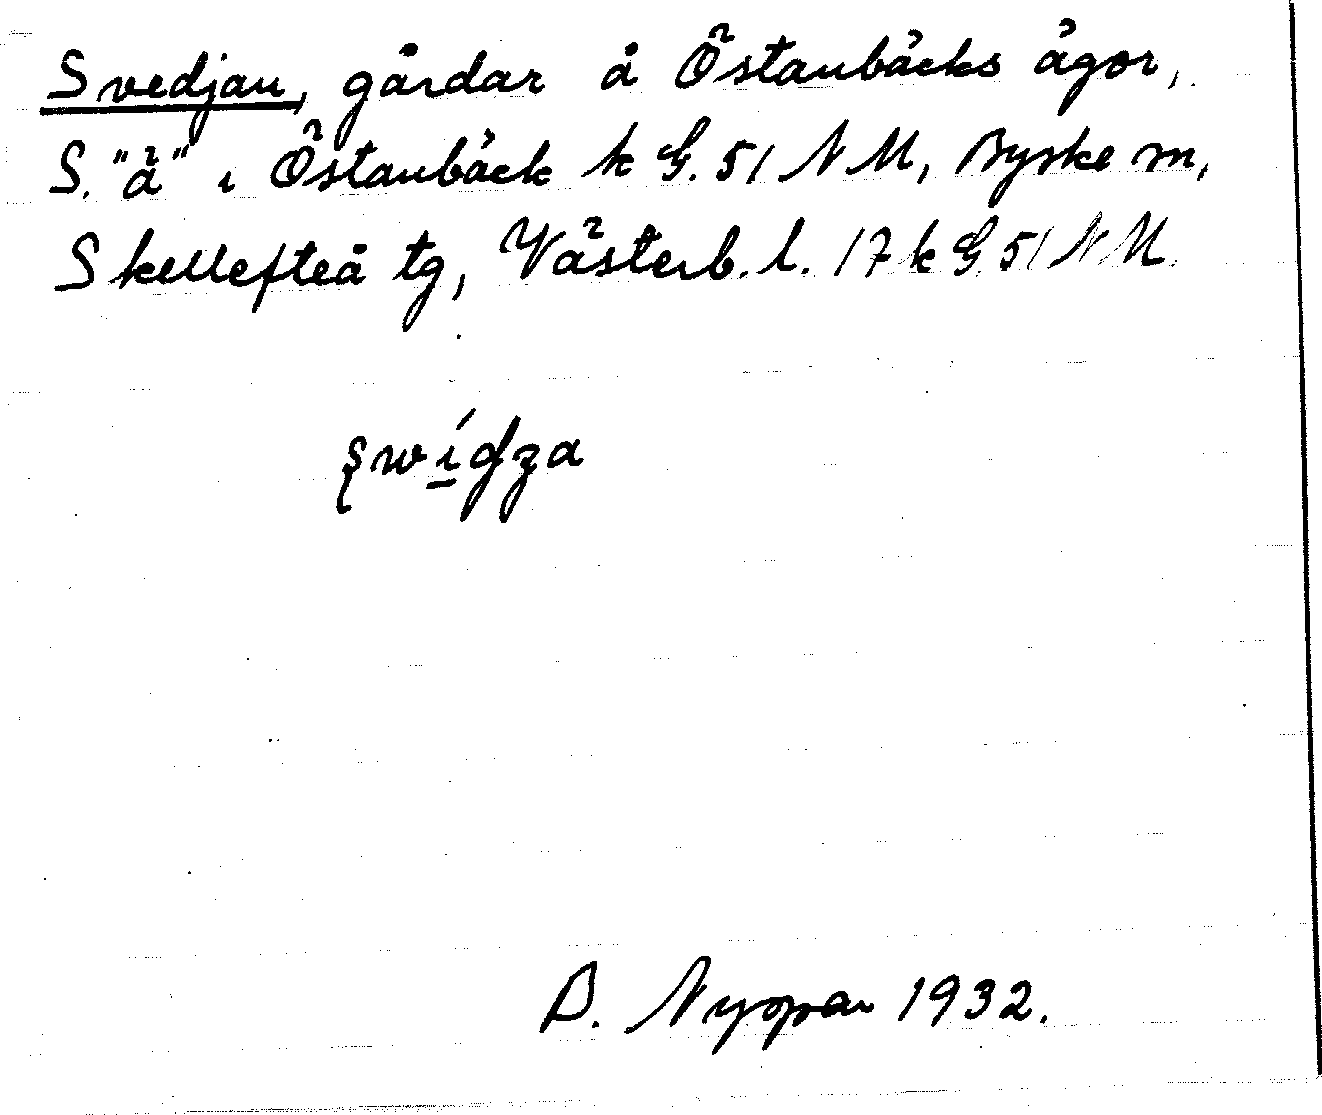 Svedjan, gårdar å Östanbäcks ägor,
S. "ä" i Östanbäck k G. 51 NM, Byske sn,
Skellefteå tg, Västerb. l. 17 k G 51 NM.
swidza
D. Nyman 1932.